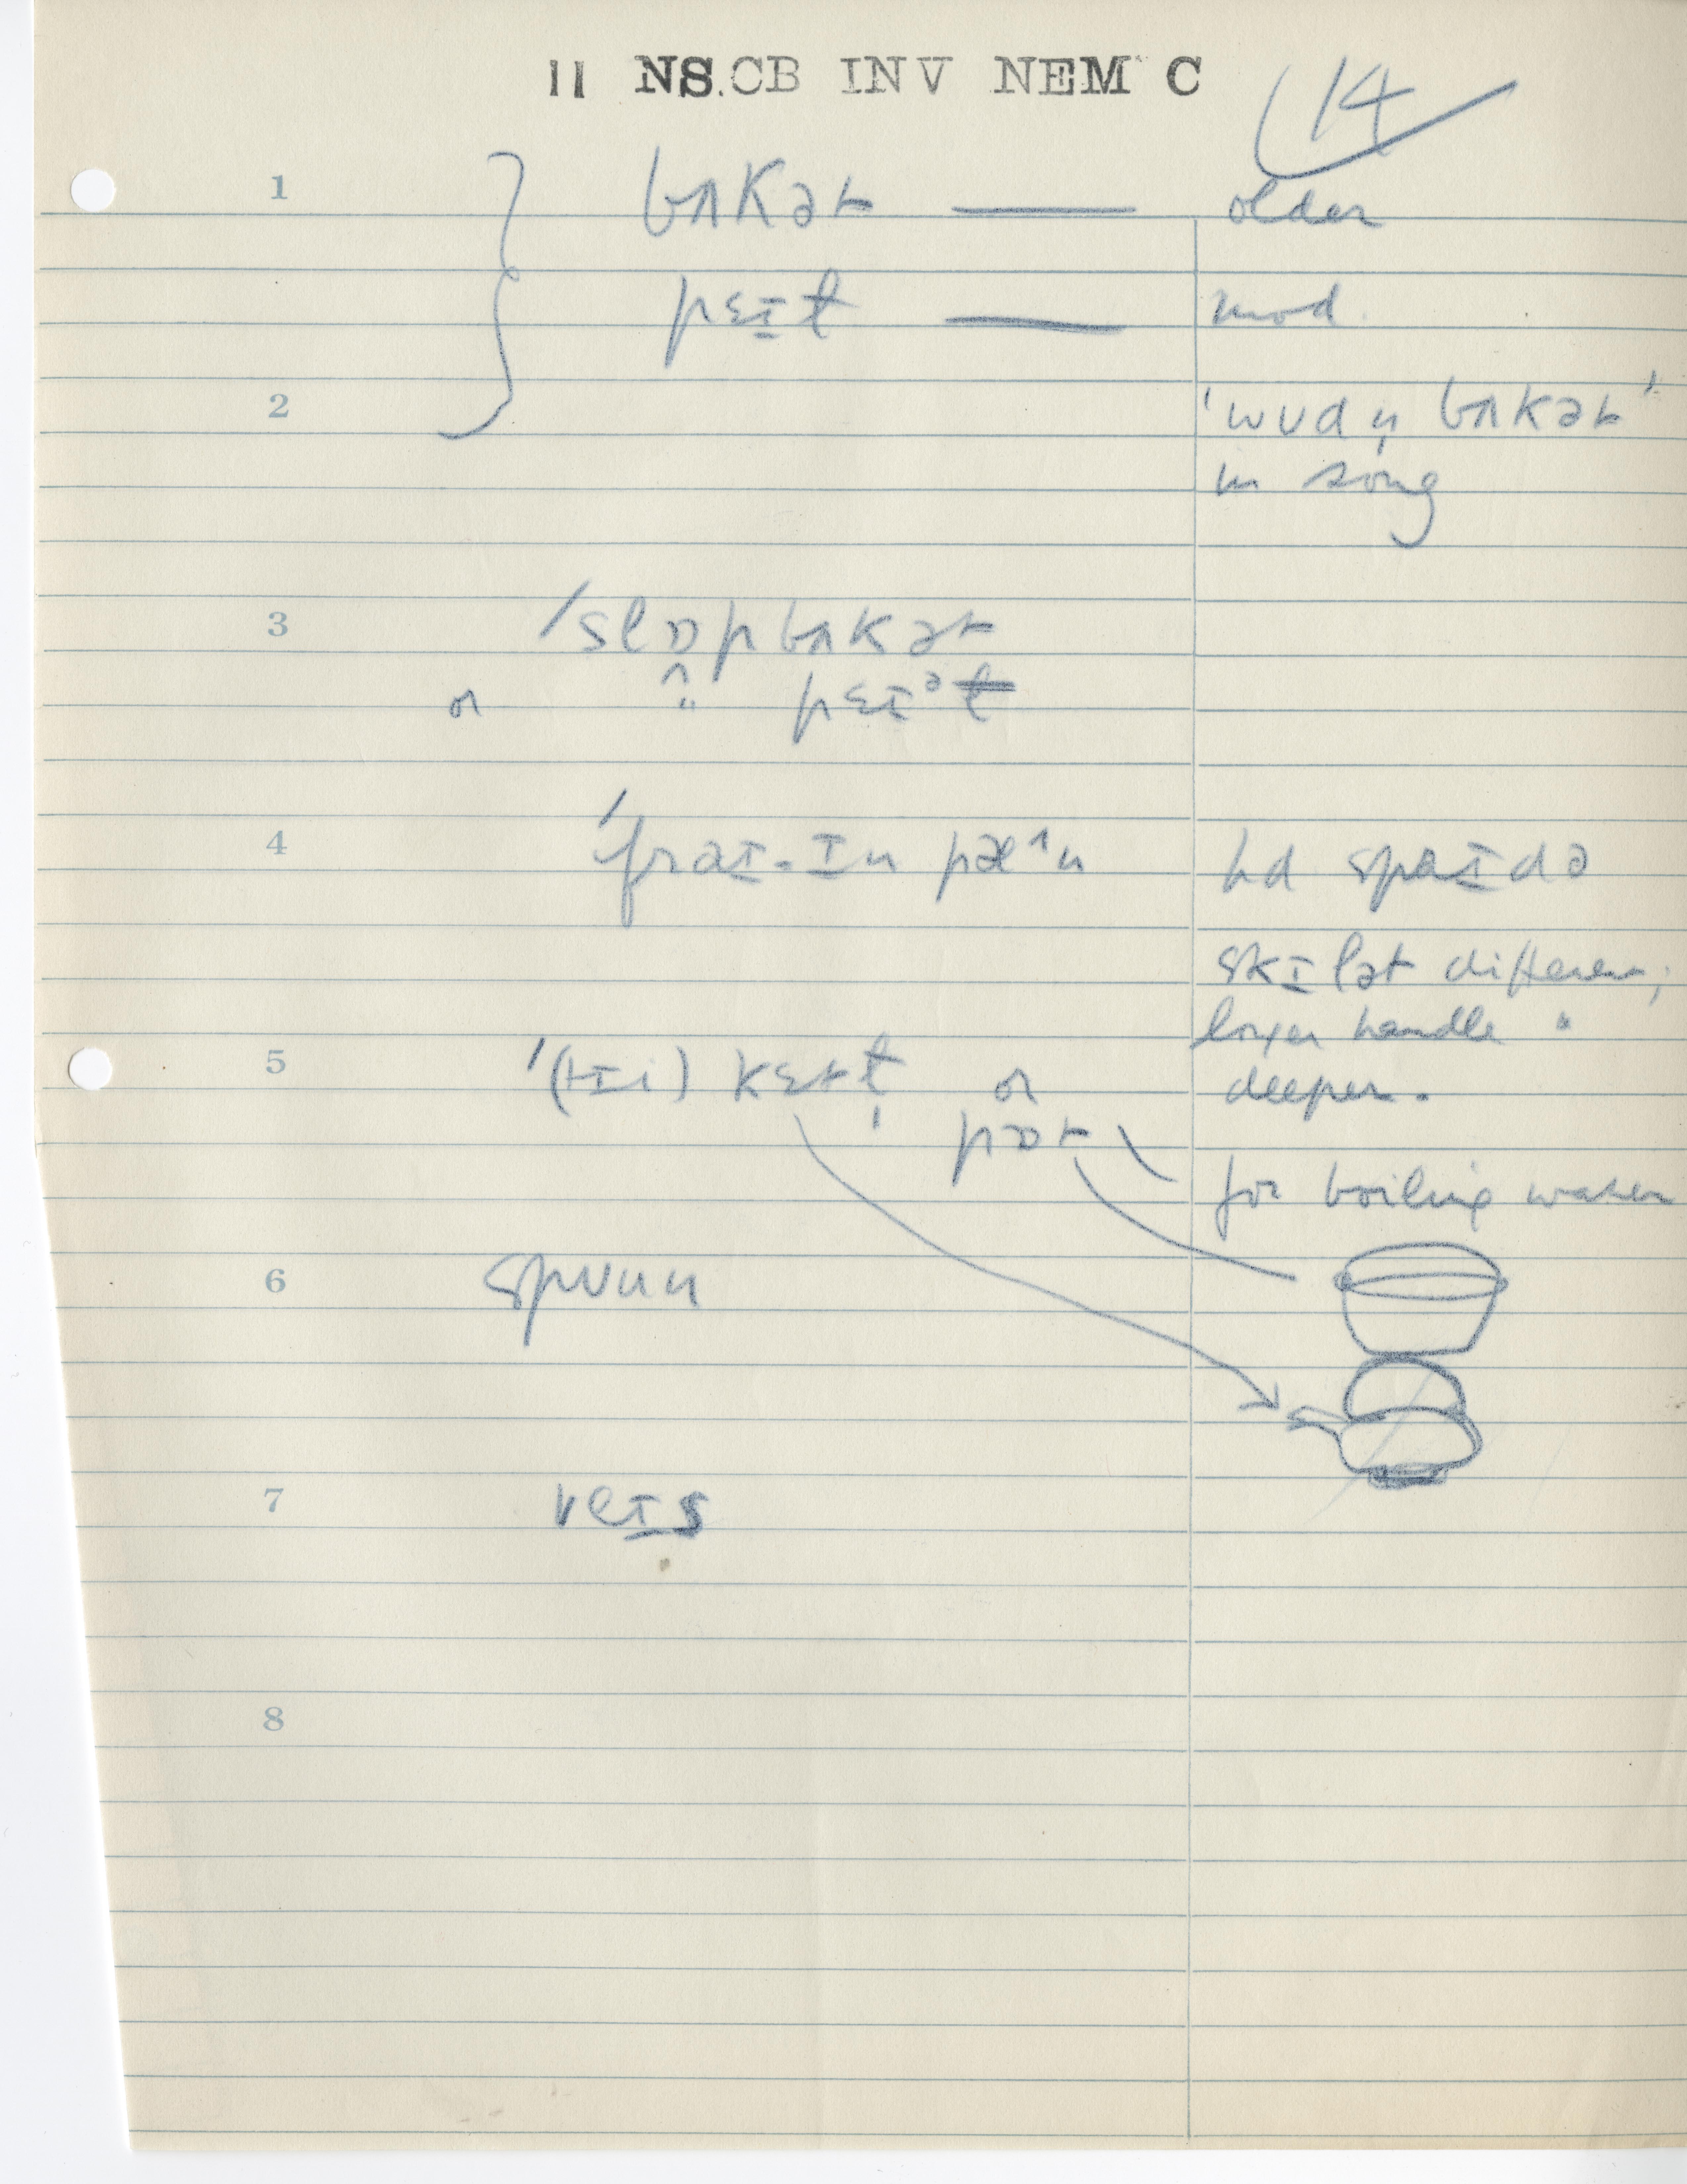 11 NS.CB INV NEM C
14
1 bʌkət — older
pɛɪɫ — mod.
2 'wʊdn̩ bʌkət'
in song
3 ′slɒpbʌkət
or " pɛɪᵊɫ
4 ′fraɪ-ɪn pæ^n hd spaɪdə
skɪlət different;
longer handle "
5 ′(tɪi) kɛtɫ̩ or deeper.
pɒt
for boiling water
6 spuun
7 veɪs
8